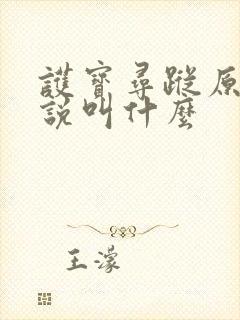 護寶尋蹤原
說叫什麼
王濛